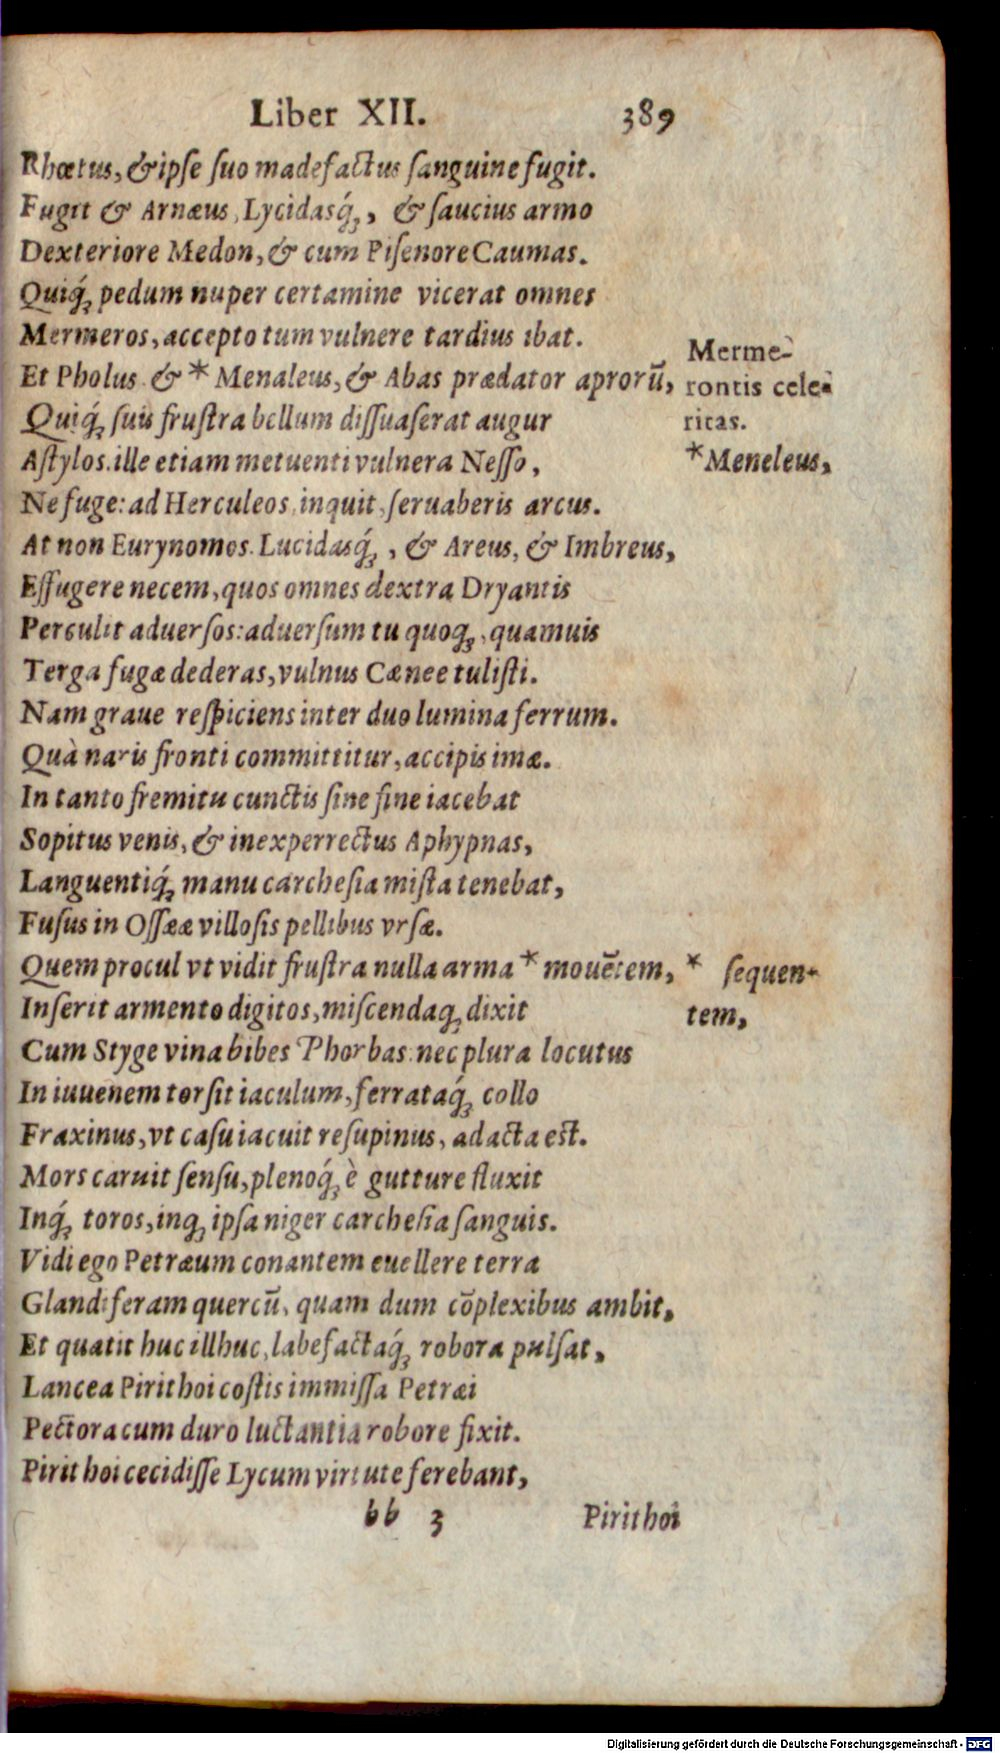 Liber XII. 389
Rhœtus, & ipſe ſuo madefactus ſanguine fugit.
Fugit & Arnæus, Lycidasq́;, & ſaucius armo
Dexteriore Medon, & cum Piſenore Caumas.
Quiq́; pedum nuper certamine vicerat omnes
Mermeros, accepto tum vulnere tardius ibat.
Et Pholus. & * Menaleus, & Abas prædator aprorū,
Quiq́; suis fruſtra bellum diſſuaſerat augur
Aſtylos. ille etiam metuenti vulnera Neſſo,
Ne fuge: ad Herculeos, inquit, ſeruaberis arcus.
At non Eurynomos. Lucidasq́;, & Areus, & Imbreus,
Effugere necem, quos omnes dextra Dryantis
Perculit aduerſos: aduerſum tu quoq;, quamuis
Terga fugæ dederas, vulnus Cænee tuliſti.
Nam graue reſpiciens inter duo lumina ferrum.
Quà naris fronti committitur, accipis imæ.
In tanto fremitu cunctis ſine fine iacebat
Sopitus venis, & inexperrectus Aphypnas,
Languentiq́; manu carcheſia miſta tenebat,
Fuſus in Oſſææ villoſis pellibus vrſæ.
Quem procul vt vidit fruſtra nulla arma * mouētem,
Inſerit armento digitos, miſcendaq; dixit
Cum Styge vina bibes Phorbas: nec plura locutus
In iuuenem torſit iaculum, ferrataq́; collo
Fraxinus, vt caſu iacuit reſupinus, adacta eſt.
Mors caruit ſenſu, plenoq́; è gutture fluxit
Inq́; toros, inq; ipſa niger carcheſia ſanguis.
Vidi ego Petræum conantem euellere terra
Glandiferam quercū, quam dum cōplexibus ambit,
Et quatit huc illhuc, labefactaq́; robora pulſat,
Lancea Pirithoi coſtis immiſſa Petræi
Pectora cum duro luctantia robore fixit.
Pirithoi cecidiſſe Lycum virtute ferebant,
bb 3 Pirithoi
Merme-
rontis cele-
ritas.
*Meneleus,
* ſequen-
tem,
Digitalisierung gefördert durch die Deutsche Forschungsgemeinschaft - DFG